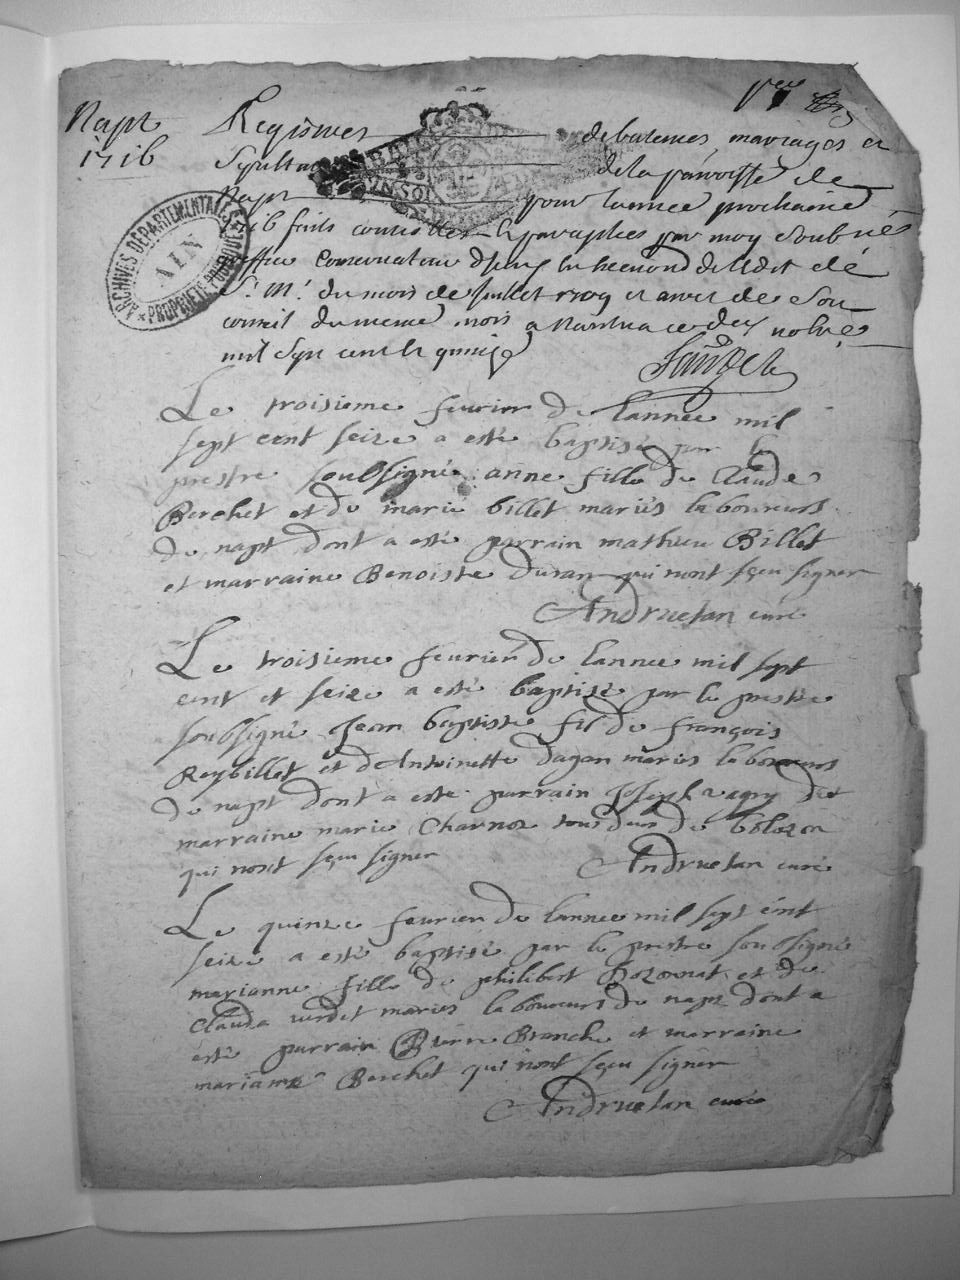 Napt
1716
Registres de batemes, mariages et
Sepultur de la parroisse de
Napt pour lannee prochaine
1716 faits controlles & paraphes par moy Soubne
greffier Conservateur dud de lEdit de
S. M. du mois de Juillet 1709 et arret de Son
conseil du meme mois a Nantua ce dix nobre
mil Sept cent & quinze
ARCHIVES DÉPARTEMENTALES
AIN
PROPRIÉTÉ PUBLIQUE
Le troisieme feurier de lannee mil
sept cent seize a esté baptise par le
prestre soubsigné anne fille de Claude
Berchet et de marie billet mariés laboureurs
de napt dont a esté parrain mathieu Billet
et marraine Benoiste duran qui nont sçeu signer
Andruetan curé
Le troisieme feurier de lannee mil sept
cent et seize a esté baptisé par le prestre
soubsigné Jean baptiste fils de françois
Reybillet et dAntoinette dagan mariés laboureurs
de napt dont a esté parrain Joseph et
marraine marie Charnoz tous deux de bolozon
qui nont sçeu signer
Andruetan curé
Le quinze feurier de lannee mil sept cent
seize a esté baptisé par le prestre soubsigné
marianne fille de philibert Bozonnat et de
Clauda verdet mariés laboureurs de napt dont a
esté parrain Pierre Branche et marraine
marianne Berchet qui nont sçeu signer
Andruetan curé